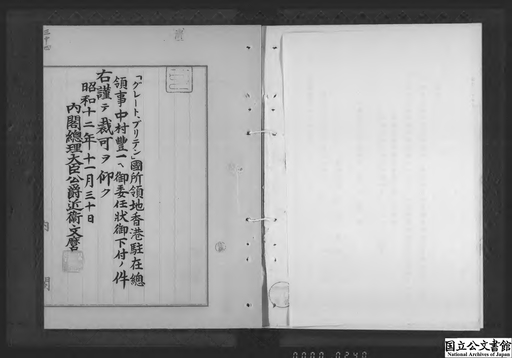 「グレート、ブリテン」國所領地香港駐在總
領事中村豐一ヘ御委任狀御下付ノ件
右謹テ裁可ヲ仰ク
昭和十二年十一月三十日
內閣總理大臣公爵近衛文麿
內閣
0000 0240
国立公文書館
National Archives of Japan